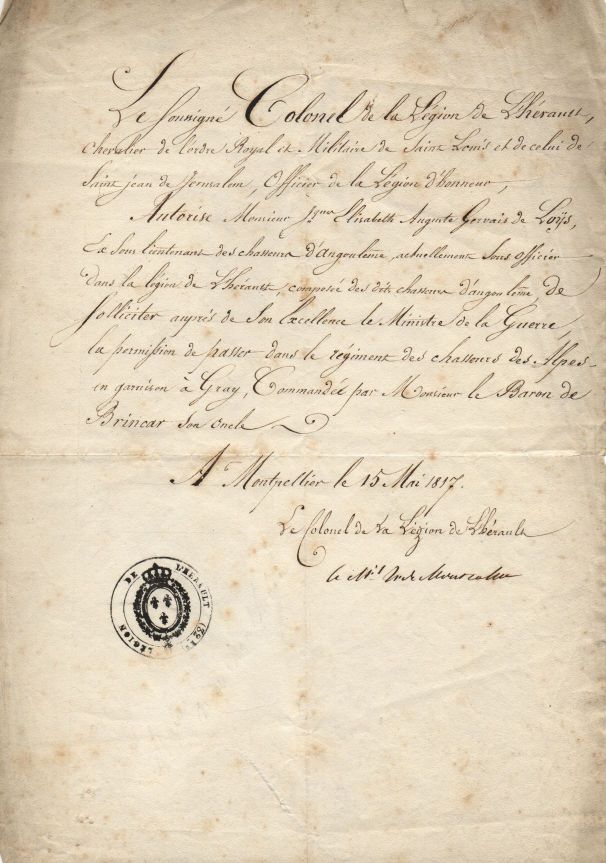 Le Sousigné Colonel de la Légion de L'hérault,
chevalier de l'ordre Royal et Militaire de Saint Louis et de celui de
Saint jean de Jerusalem, Officier de la Légion d'honneur,
Autorise Monsieur Elisabeth Auguste Gervais de Loÿs,
Ex Sous lieutenant des chasseurs d'angouleme, actuellement Sous Officier
dans la légion de L'hérault, composée des dits chasseurs d'angoulême, de
solliciter auprès de Son Excellence le Ministre de la Guerre,
la permission de passer dans le régiment des chasseurs des Alpes
en garnison à Gray, Commandée par Monsieur le Baron de
Brincar son oncle
A Montpellier le 15 Mai 1817.
Le Colonel de la Légion de L'hérault
le Mis de Montcalm
LÉGION DE L'HERAULT